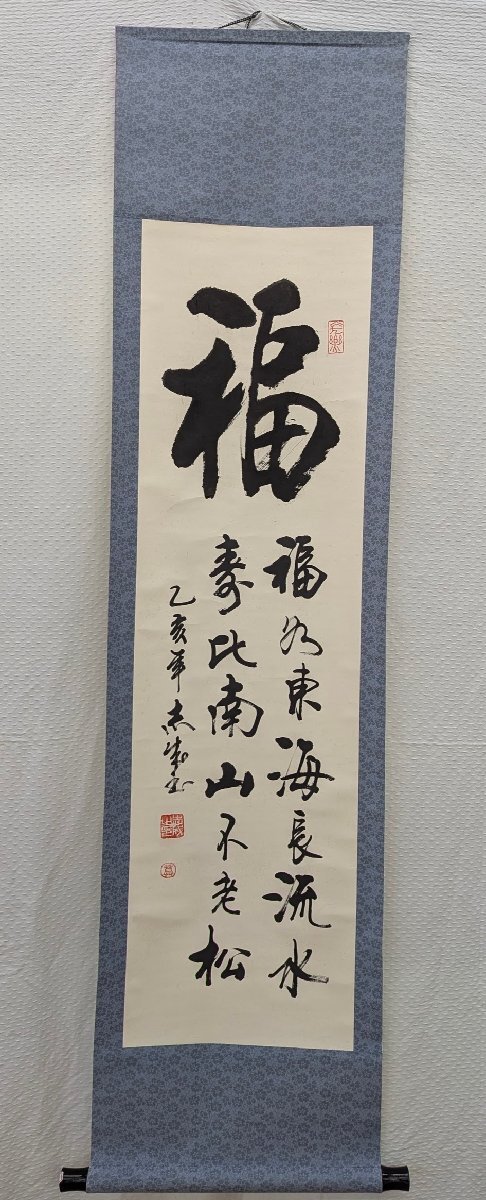 福
福如東海長流水
壽比南山不老松
乙亥年志成書